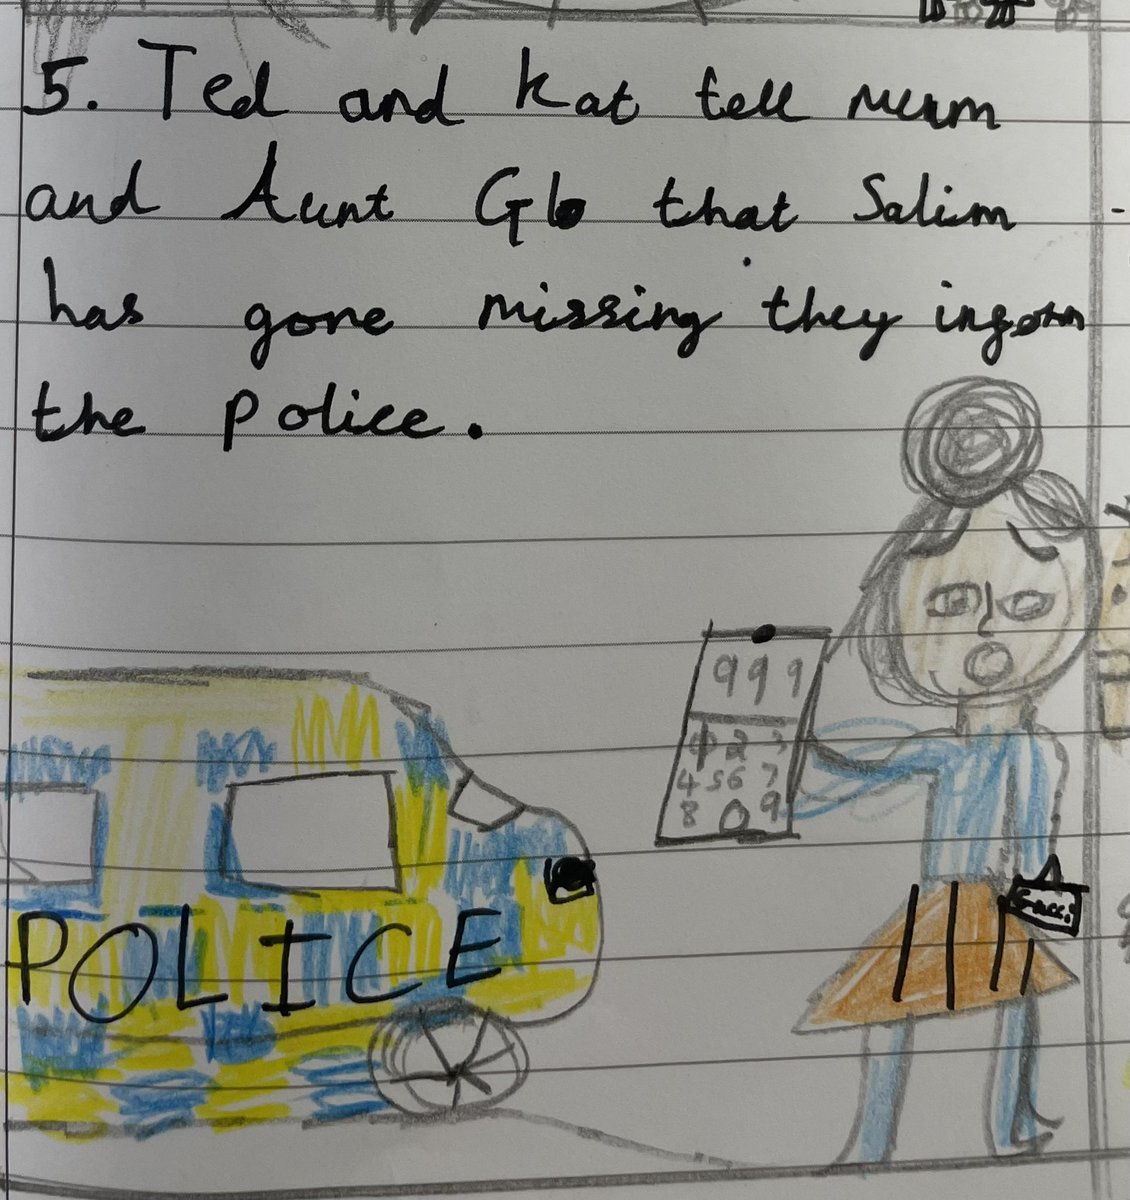 5. Ted and Kat tell mum
and Aunt Glo that Salim
has gone missing they inform
the police.
999
1 2 3
4 5 6 7
8 0 9
POLICE
Gucci